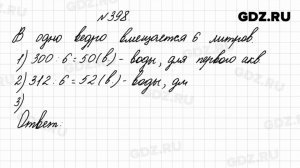 GDZ.RU
№398
В одно ведро вмещается 6 литров
1) 300 : 6 = 50 (в) - воды, для первого акв
2) 312 : 6 = 52 (в) - воды, дл
3)
Ответ: